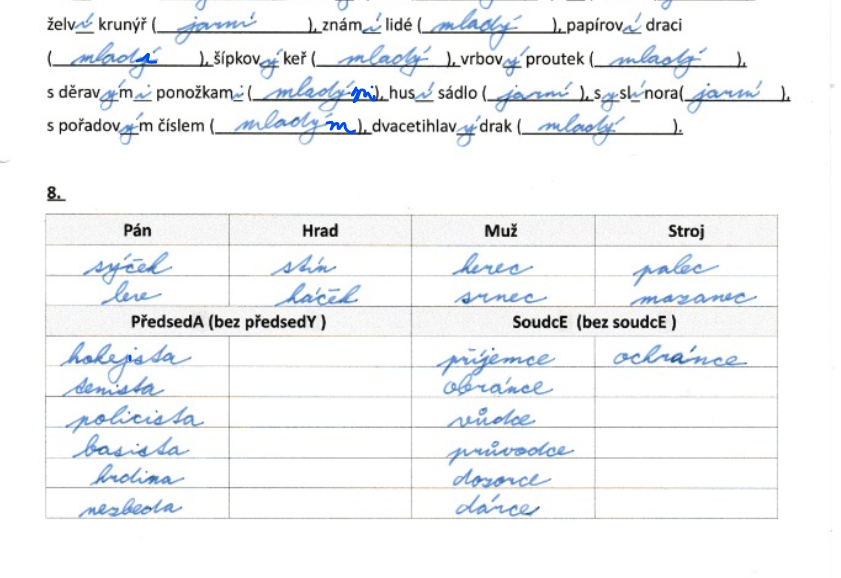 želví krunýř (jarní), známí lidé (mladý), papíroví draci
(mladí), šípkový keř (mladý), vrbový proutek (mladý),
s děravými ponožkami (mladým), husí sádlo (jarní), syslí nora(jarní),
s pořadovým číslem (mladým), dvacetihlavý drak (mladý).
8.
Pán Hrad Muž Stroj
sýček stín herec palec
lev háček srnec mazanec
PředsedA (bez předsedY ) SoudcE (bez soudcE )
hokejista příjemce ochránce
tenista obránce
policista vůdce
basista průvodce
hrdina dozorce
nezbeda dárce